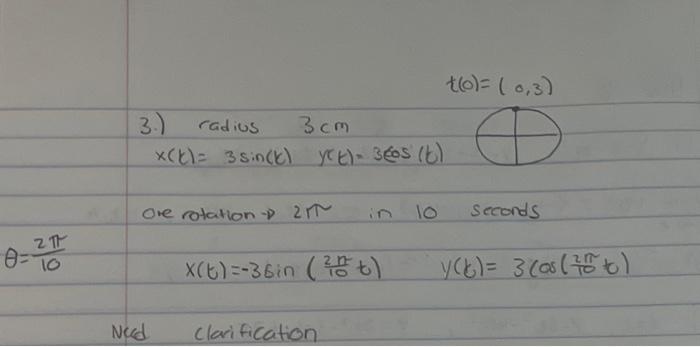 t(0)= (0,3)
3.) radius 3cm
x(t)= 3sin(t) y(t)= 3cos(t)
one rotation → 2π in 10 seconds
θ=2π/10
x(t)=-3sin(2π/10 t) y(t)= 3cos(2π/10 t)
Need clarification